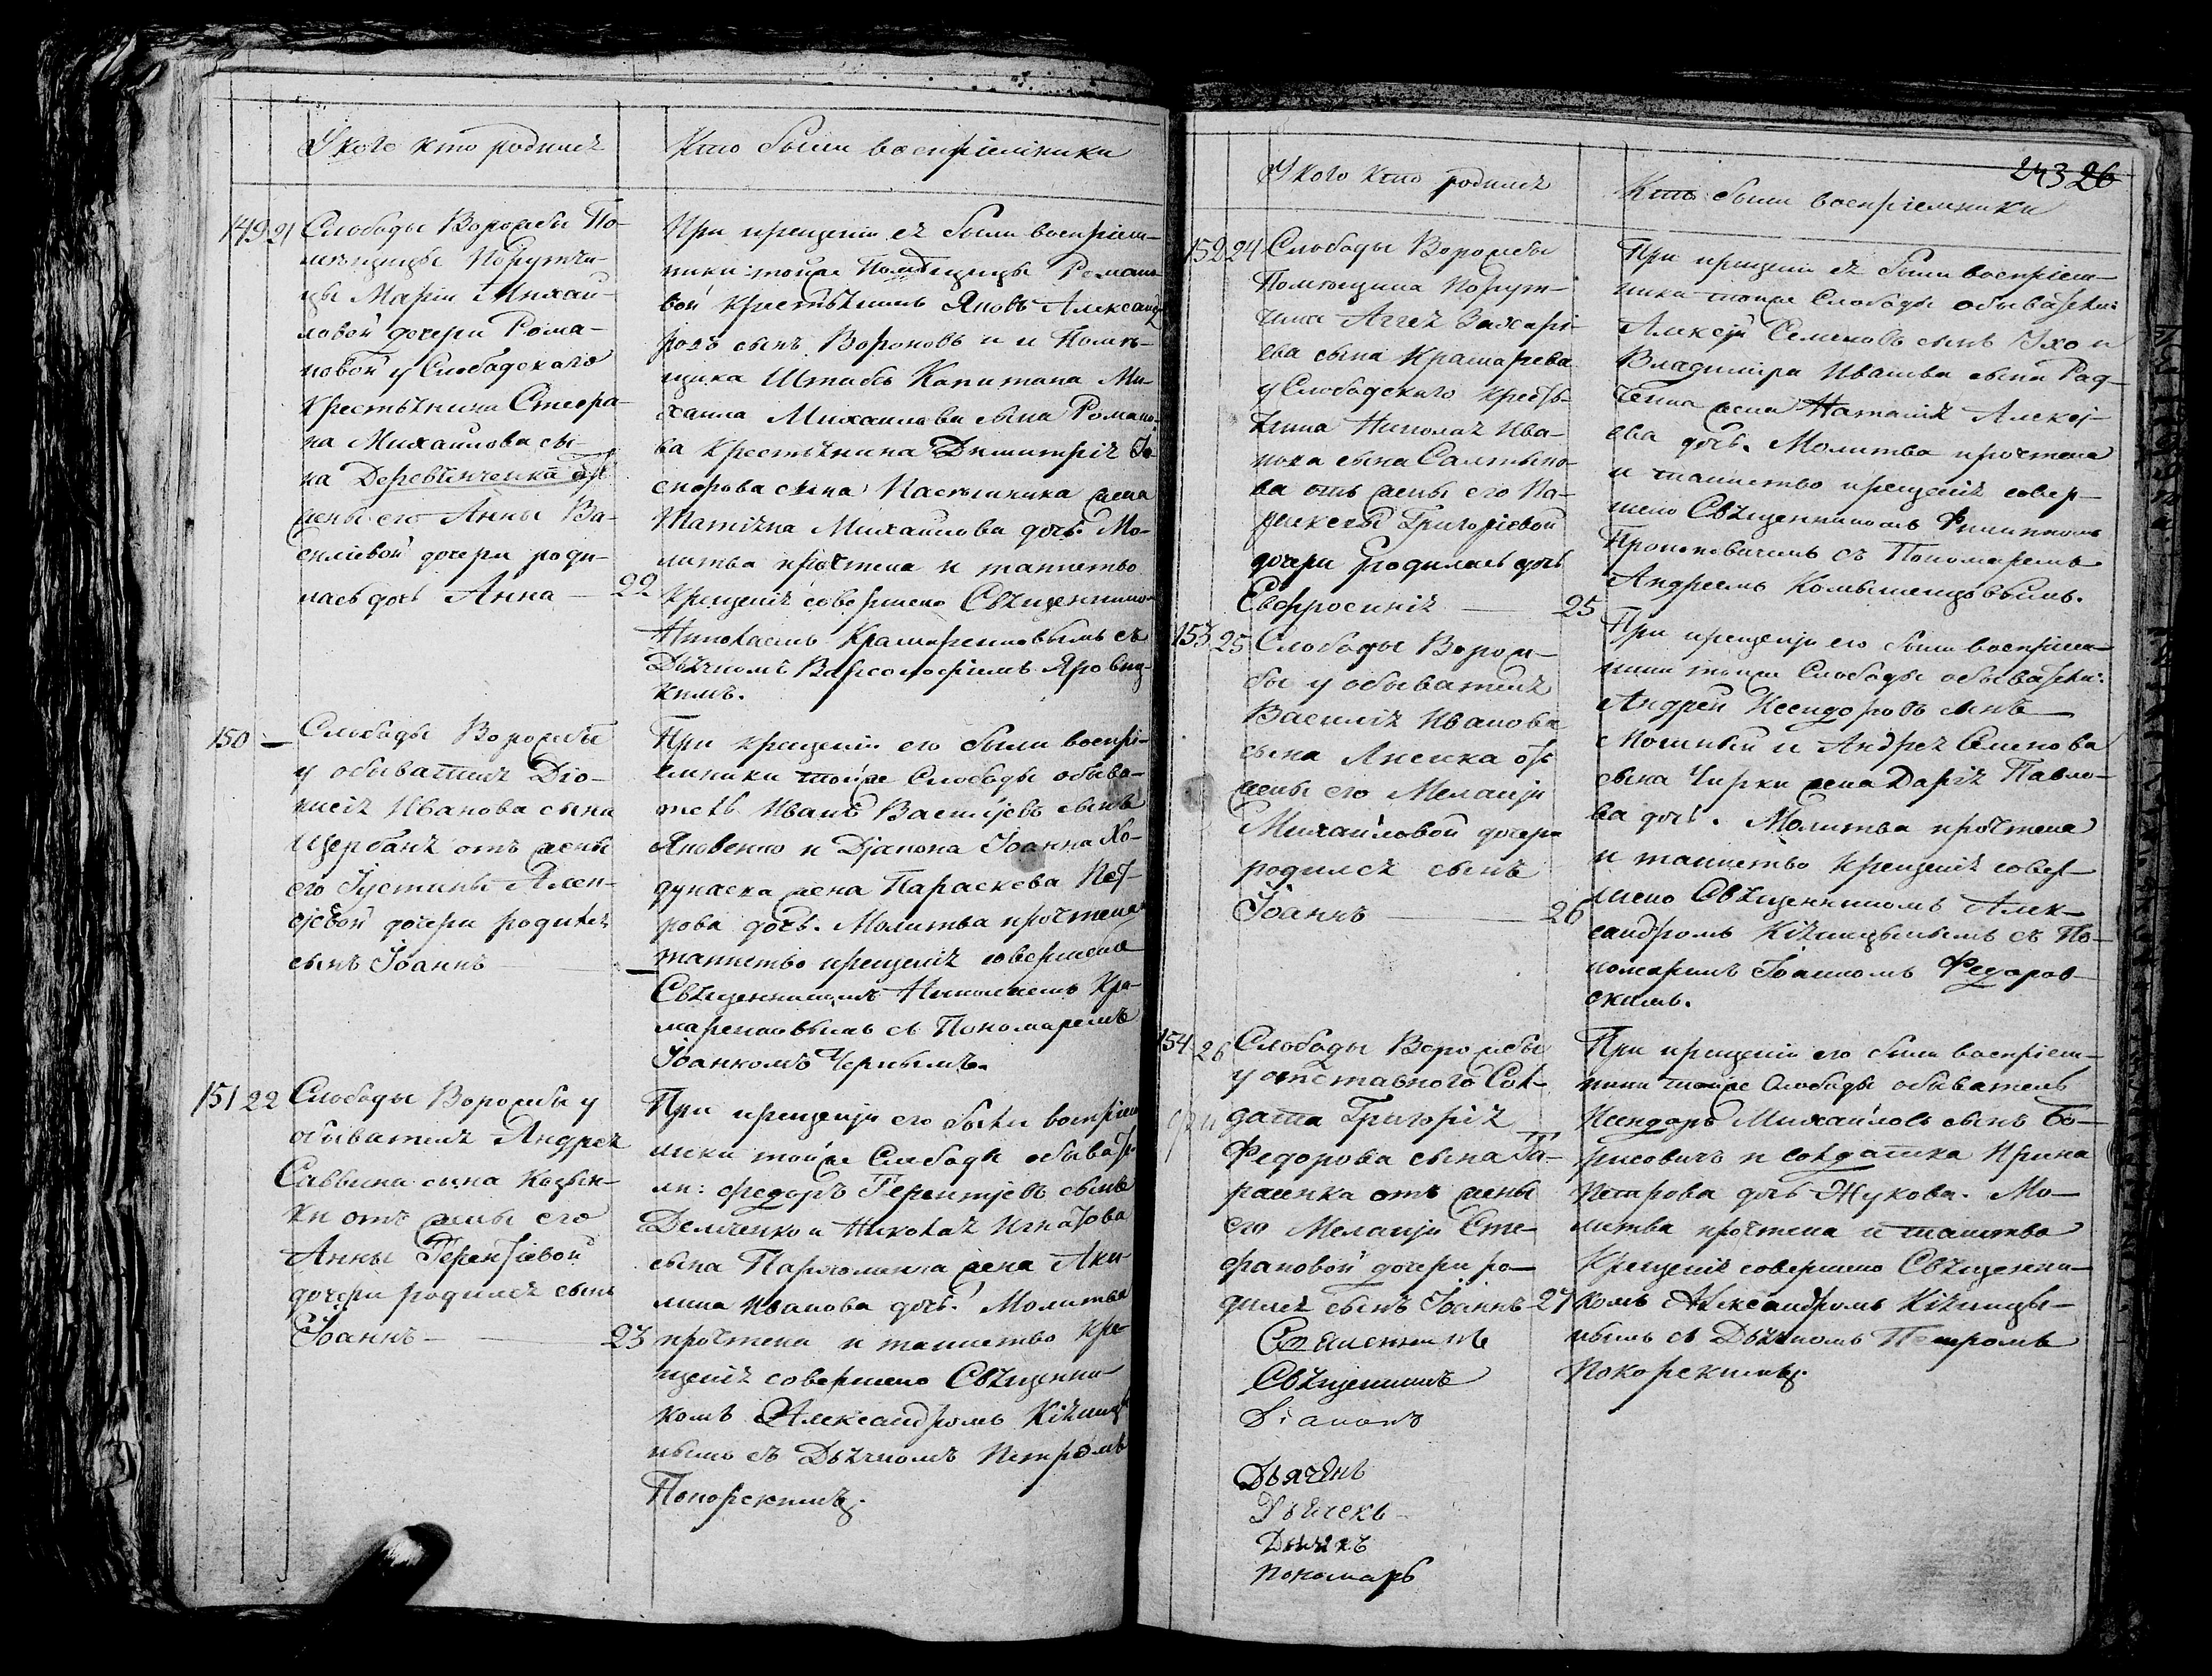 У кого кто родился
Кто были восприемники
149 21 Слободы Ворожбы По-
мѣщицы Поручи-
цы Маріи Михай-
ловой дочери Рома-
новой у Слободскаго
крестьянина Стефа-
на Михайлова сы-
на Деревянченка отъ
жены его Анны Ва-
силіевой дочери роди-
лась дочь Анна — 22
При крещеніи ея были воспріем-
ники: тойже Помѣщицы Романо-
вой крестьянинъ Яковъ Александ-
ровъ сынъ Вороновъ и Помѣ-
щика Штабсъ Капитана Ми-
хаила Михаилова сына Романо-
ва Крестьянина Димитрія
сына жена
Татіяна Михаилова дочь. Мо-
литва прочтена и таинство
крещенія совершено Священнико
Николаемъ Крамаренковымъ съ
Дьячкомъ Варѳоломѣемъ Яровиц-
кимъ.
150 — Слободы Ворожбы
у обывателя Діо-
нисія Иванова сына
Щербаня отъ жены
его Іустины Алек-
сіевой дочери родился
сынъ Іоаннъ —
При крещеніи его были воспрі-
емники тойже Слободы обыва-
тель Иванъ Василіевъ сынъ
Яковенко и Діакона Іоанна Хо-
дунаека жена Параскева Пет-
рова дочь. Молитва прочтена
таинство крещенія совершено
Священникомъ Николаемъ Кра-
маренковымъ съ Пономаремъ
Іоанномъ Чернымъ.
151 22 Слободы Ворожбы у
обывателя Андрея
Саввина сына Козын-
ки отъ жены его
Анны Терентіевой
дочери родился сынъ
Іоаннъ — 23
При крещеніи его были воспріем
ники тойже Слободы обывате
ли: Федоръ Терентіевъ сынъ
Демченко и Николая Игнатова
сына Пархоменка жена Аки-
лина Иванова дочь. Молитва
прочтена и таинство кре-
щенія совершено Священни-
комъ Александромъ Кіяницы
нымъ съ Дьячкомъ Петромъ
Покорскимъ.
243 26
У кого кто родился
Кто были восприемники
152 24 Слободы Ворожбы
Помѣщика Порут-
чика Аггея Захарі-
ева сына Крамарева
у Слободскаго кресть-
янина Николая Ива-
нова сына Салтыко-
ва отъ жены его Па-
раскевы Григоріевой
дочери родилась дочь
Евфросинія — 25
При крещеніи ея были воспріем-
ники тойже Слободы обыватели:
Алексѣй Семеновъ сынъ Ухо и
Владиміра Иванова сына Рад-
жена Наталія Алексѣ-
ева дочь. Молитва прочтена
и таинство крещенія совер-
шено Священникомъ Филиппомъ
Прокоповичемъ съ Пономаремъ
Андреемъ Комышенцовымъ.
153 25 Слободы Ворож-
бы у обывателя
Василія Иванова
сына Лисика отъ
жены его Меланіи
Михаиловой дочери
родился сынъ
Іоаннъ — 26
При крещеніи его были воспріем-
ники тойже Слободы обыватели:
Андрей Исидоровъ сынъ
и Андрея Семенова
сына Чирки жена Дарія Павло-
ва дочь. Молитва прочтена
и таинство крещенія совер-
шено Священникомъ Алек-
сандромъ Кіяницынымъ съ По-
номаремъ Іоанномъ Федоров-
скимъ.
154 26 Слободы Ворожбы
у отставного Сол-
дата Григорія
Федорова сына Га-
расика отъ жены
его Меланіи Сте-
фановой дочери ро-
дился сынъ Іоаннъ — 27
При крещеніи его были воспріем-
ники тойже Слободы обыватель
Исидоръ Михайловъ сынъ Бо-
рисовичъ и солдатка Ирина
Петрова дочь Жукова. Мо-
литва прочтена и таинство
Крещенія совершено Священни-
комъ Александромъ Кіяницы-
нымъ съ Дьячкомъ Петромъ
Покорскимъ.
Священникъ
Священникъ
Діаконъ
Дьячекъ
Дьячекъ
Дьячекъ
Пономарь